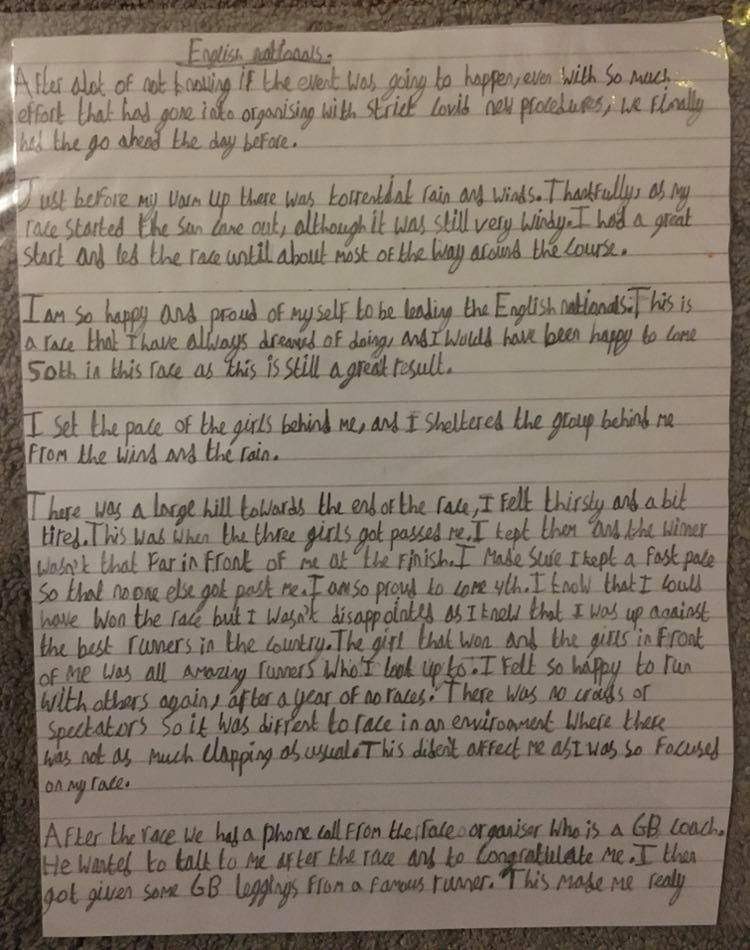 English nationals.
After alot of not knowing if the event was going to happen, even with so much
effort that had gone into organising with strict covid new procedures, we finally
had the go ahead the day before.
Just before my warm up there was torrentdal rain and winds. Thankfully, as my
race started the sun came out, although it was still very windy. I had a great
start and led the race until about most of the way around the course.
I am so happy and proud of myself to be leading the English nationals. This is
a race that I have always dreamed of doing, and I would have been happy to come
50th in this race as this is still a great result.
I set the pace of the girls behind me, and I sheltered the group behind me
from the wind and the rain.
There was a large hill towards the end of the race, I felt thirsty and a bit
tired. This was when the three girls got passed me. I kept them and the winner
wasn't that far in front of me at the finish. I made sure I kept a fast pace
so that no one else got past me. I am so proud to come 4th. I know that I could
have won the race but I wasn't disappointed as I knew that I was up against
the best runners in the country. The girl that won and the girls in front
of me was all amazing runners who'I look up to. I felt so happy to run
with others again, after a year of no races. There was no crouds or
spectators so it was diffrent to race in an environment where there
was not as much clapping as usual. This diden't affect me as I was so focused
on my race.
After the race we had a phone call from the race organiser who is a GB coach.
He wanted to talk to me after the race and to congratulate me. I then
got given some GB leggings from a famous runner. This made me realy